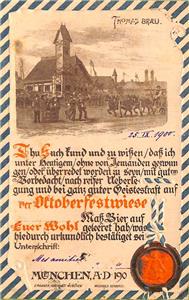 THOMAS BRÄU.
25. IX. 1900.
Thu Euch kund und zu wißen/daß ich
unter Heutigem/ohne von Jemanden gezwun
gen/oder überredet worden zu seyn/mit gutem
Vorbedacht/nach reifer Ueberle
gung und bei ganz guter Geistesfraft auf
der Oktoberfestwiese
Maß Bier auf
Euer Wohl geleeret hab/was
hiedurch urkundlich bestätiget sei
Unterschrift:
MÜNCHEN, A.D. 190